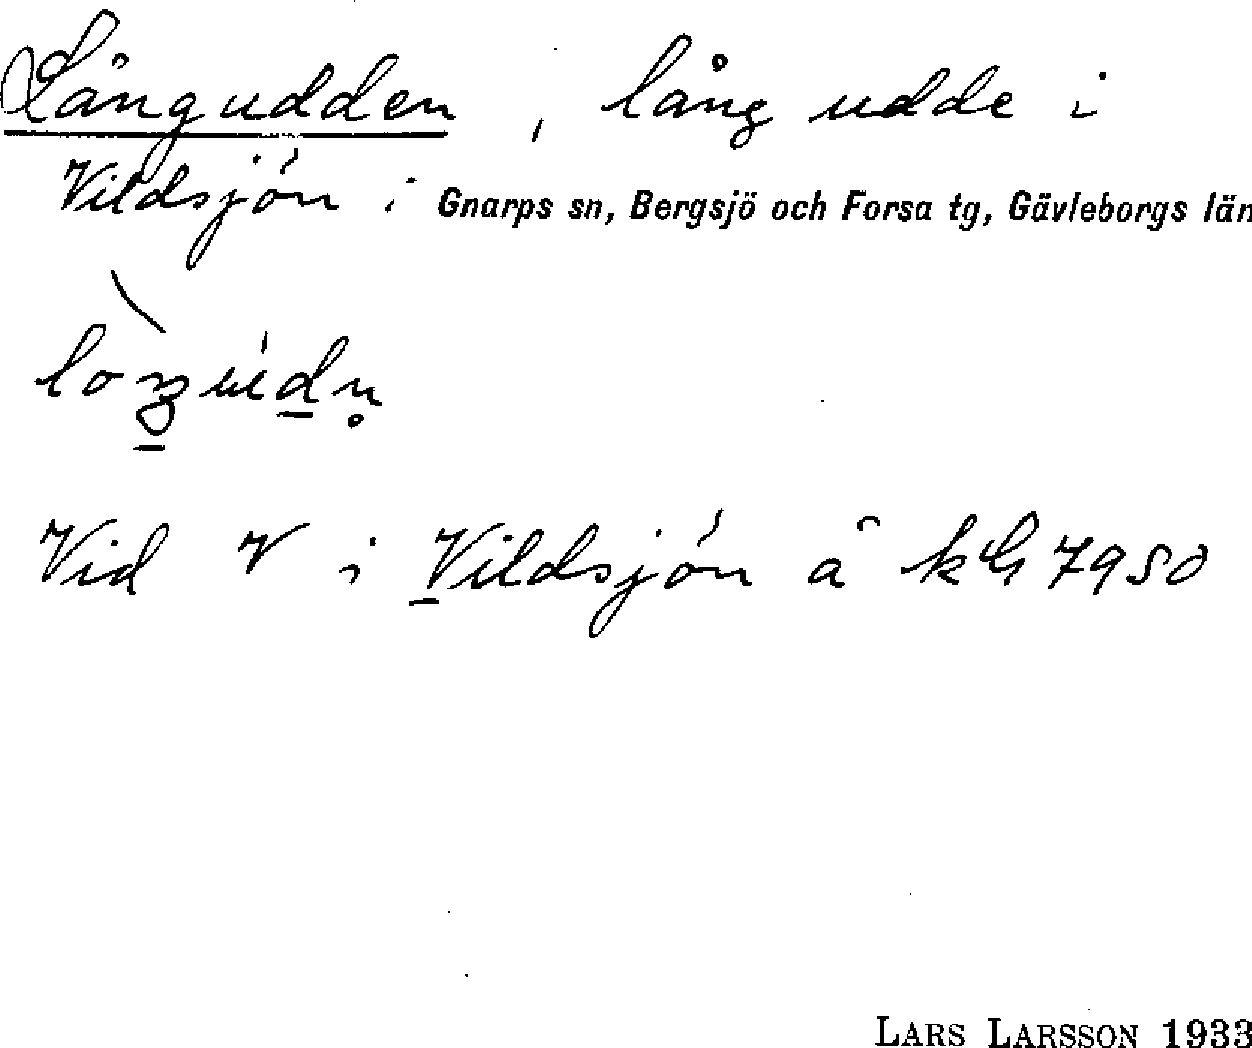 Långudden, lång udde i
Vildsjön i Gnarps sn, Bergsjö och Forsa tg, Gävleborgs län
Vid V i Vildsjön å kG 7950
LARS LARSSON 1933